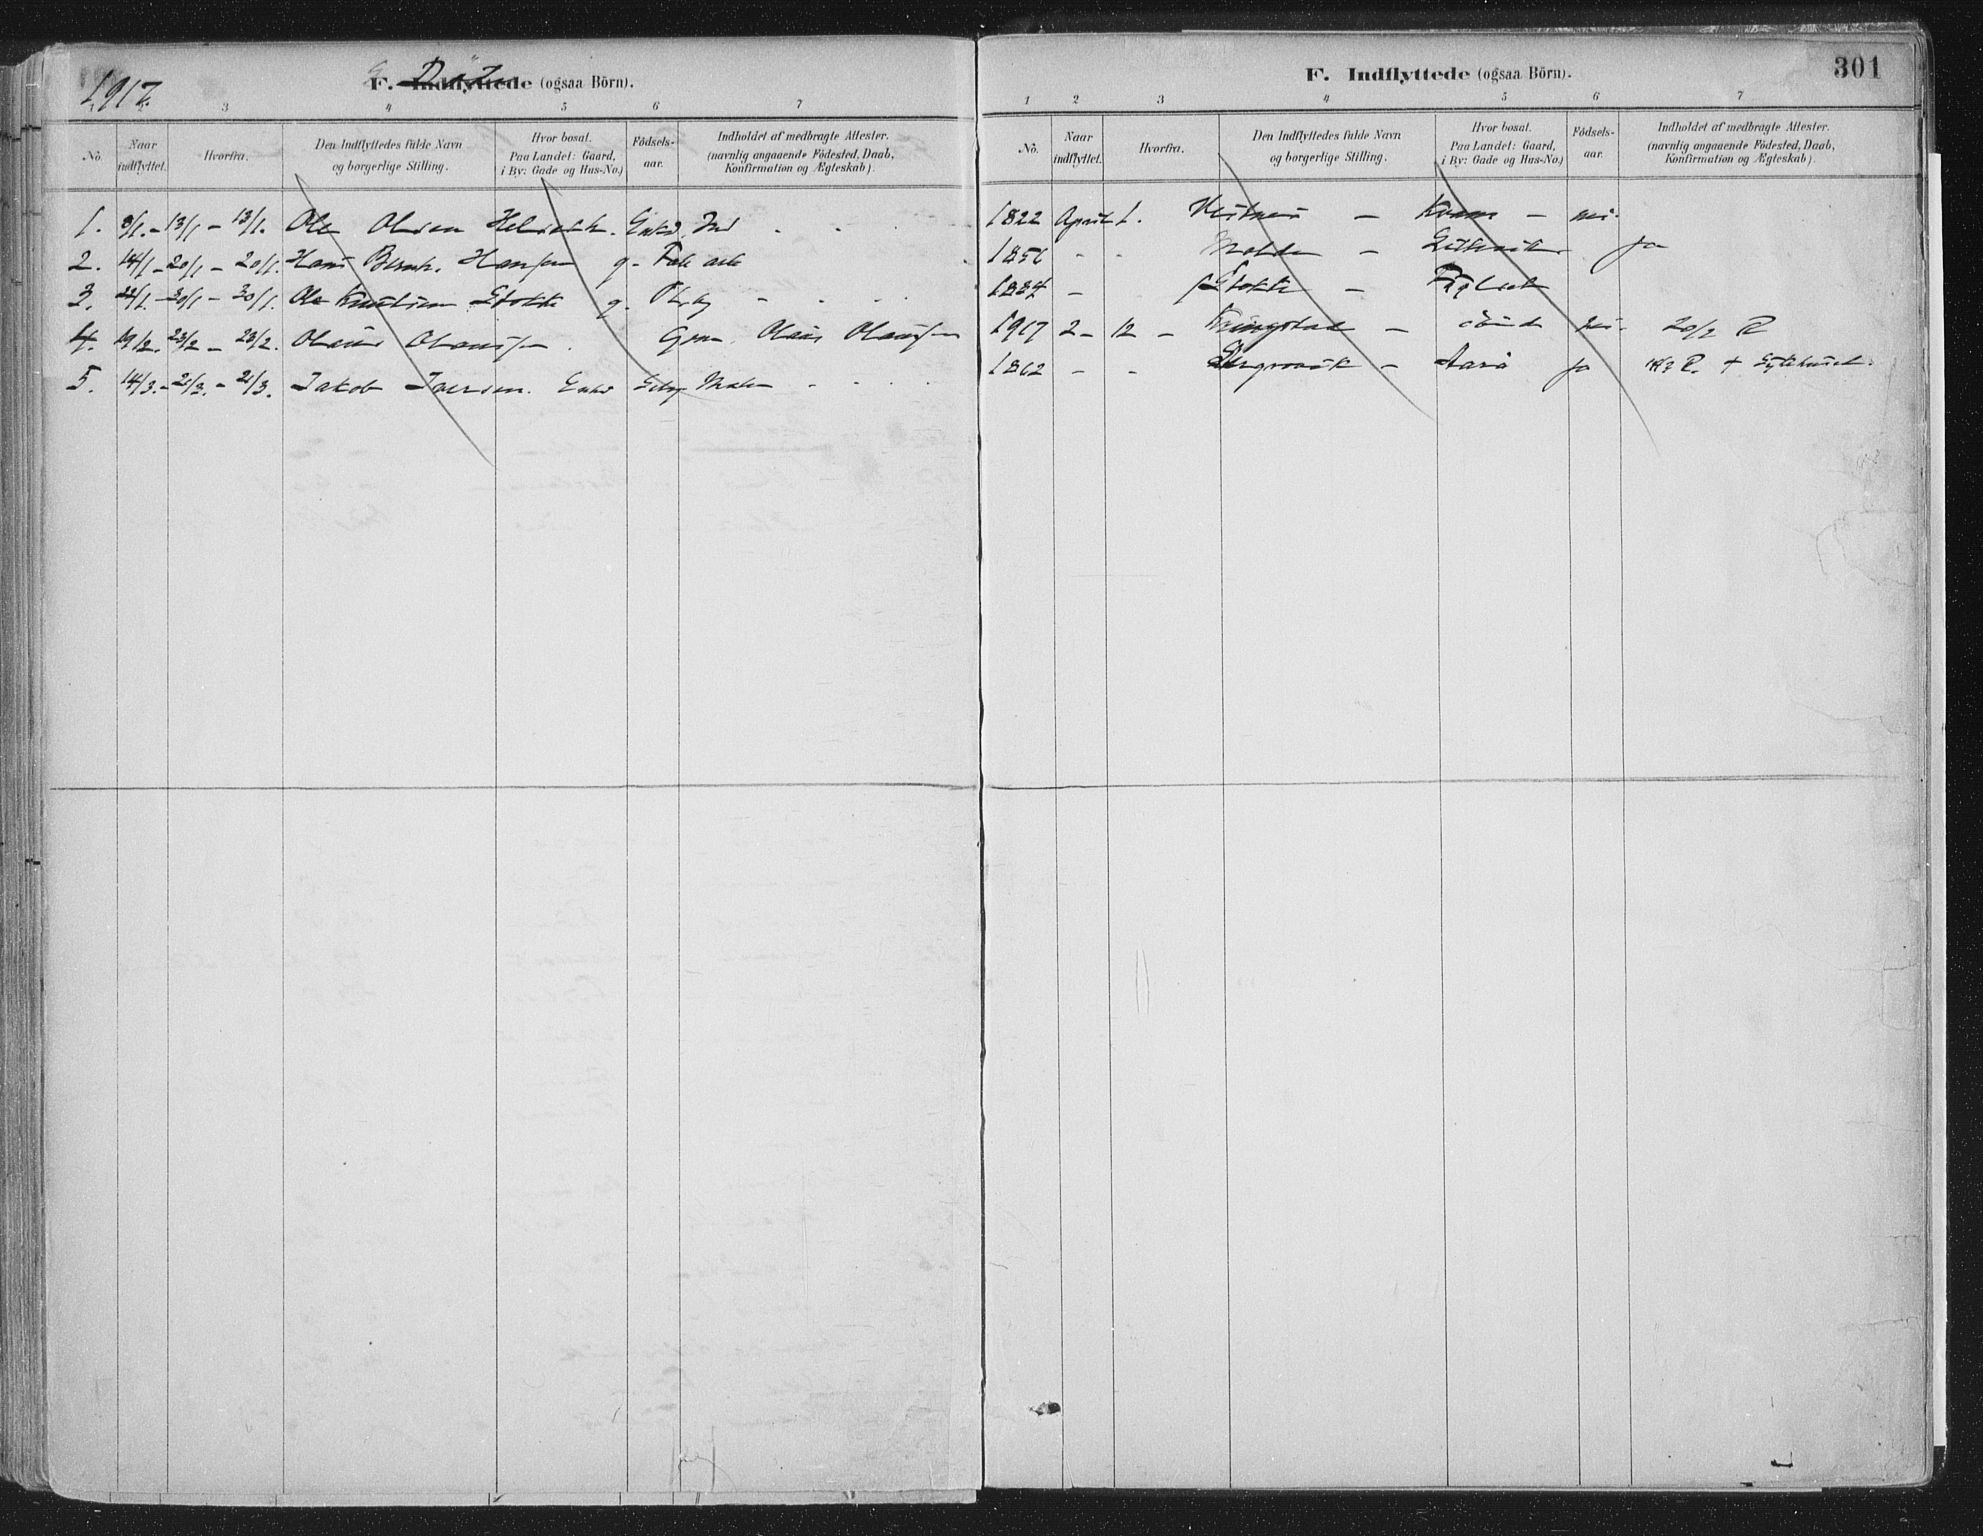 1917.
F. Indflyttede (ogsaa Börn).
1 3 4 5 6 7
No. Naar indflyttet. Hvorfra. Den Indflyttedes fulde Navn og borgerlige Stilling. Hvor bosat. Paa Landet: Gaard, i By: Gade og Hus-No.) Födsels-aar. Indholdet af medbragte Attester. (navnlig angaaende Födested, Daab, Konfirmation og Ægteskab).
1. 8/1. - 13/1 - 13/1. Ole Olsen Enkd.
2. 14/1 - 20/1 - 20/1. Hans Bernh. Hansen g.
3. 22/1. - 30/1 - 30/1. Ole Kristian Stokke g.
4. 19/2. 23/2 - 23/2. Olaus Olaussen. Olaus Olaussen
5. 14/3. - 21/3. - 21/3. Jakob Iversen. Enkd
F. Indflyttede (ogsaa Börn).
301
1 2 3 4 5 6 7
No. Naar indflyttet. Hvorfra. Den Indflyttedes fulde Navn og borgerlige Stilling. Hvor bosat. Paa Landet: Gaard, i By: Gade og Hus-No.) Födsels-aar. Indholdet af medbragte Attester. (navnlig angaaende Födested, Daab, Konfirmation og Ægteskab).
1822 April 1. Vestnes - Kvam - nei.
1856 - - Molde - ja
1884 - Stokke -
1917 2 - 12 - Kringstad - nei. 20/2 R
1862 - - - Aarö ja R. + Sykehuset.